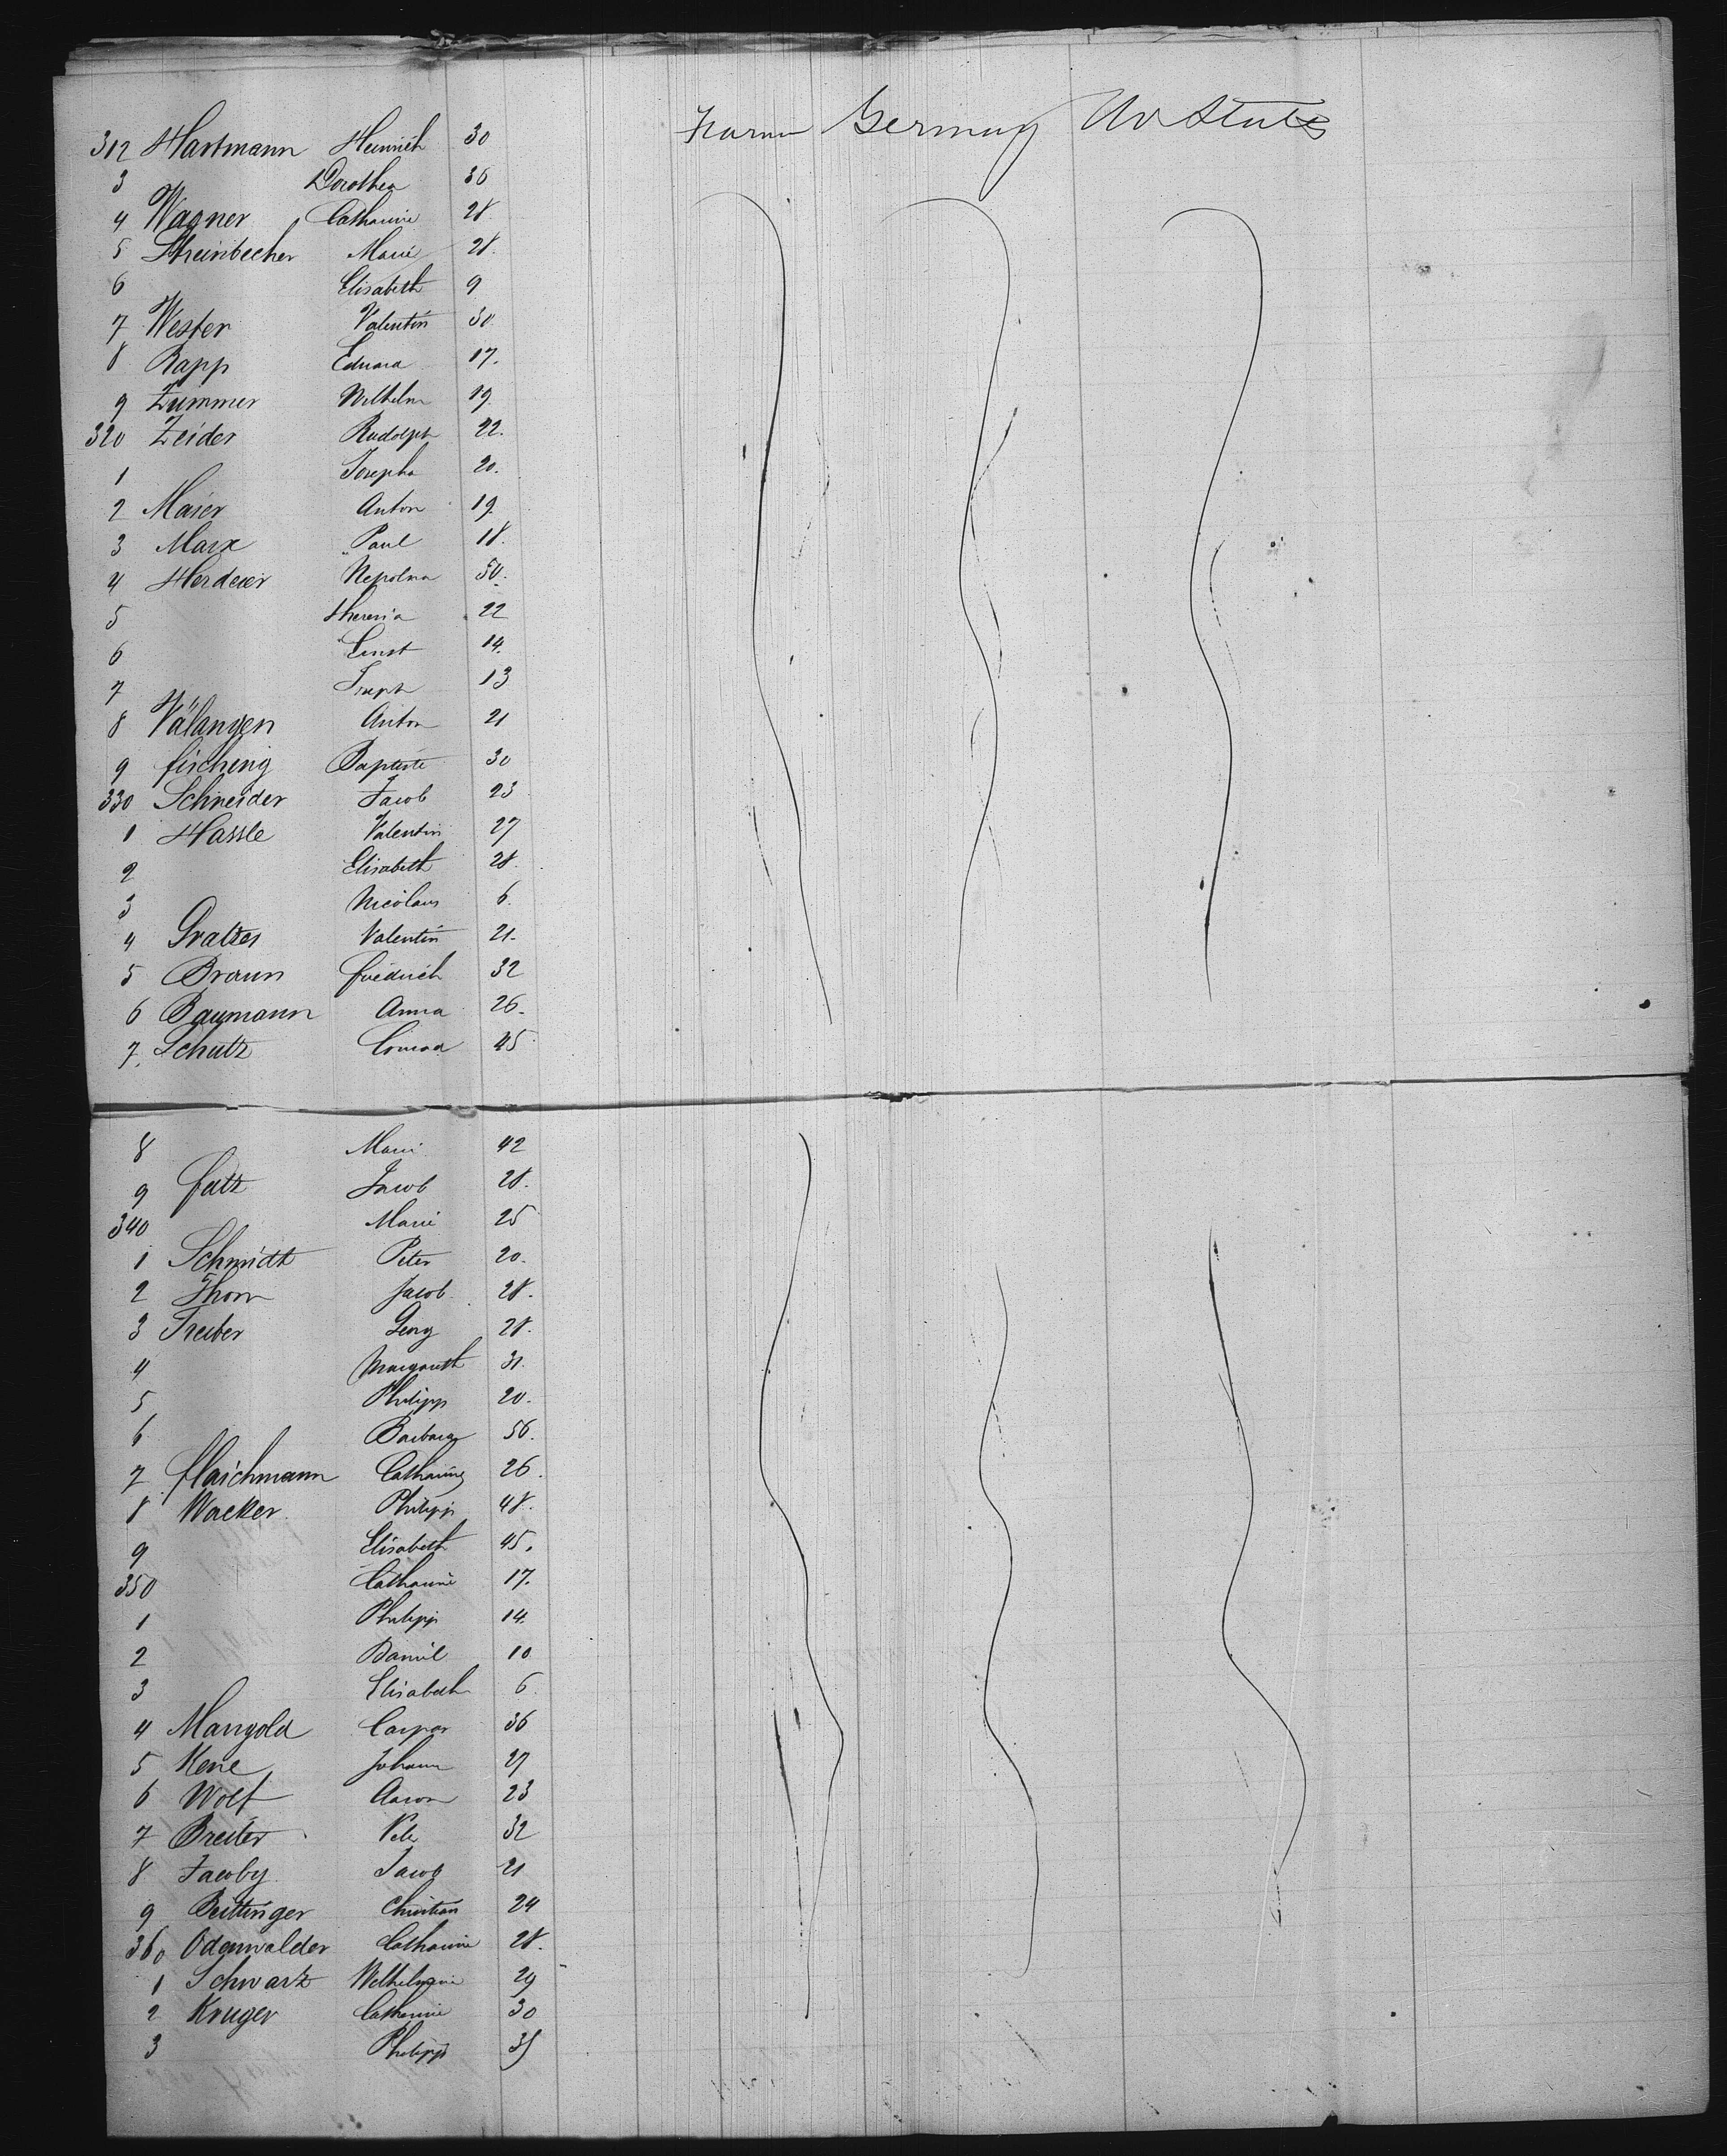 312 Hartmann Heinrich 30 Farm Germany Un States
3 Dorothea 36
4 Wagner Catharine 28.
5 Marie 28.
6 Elisabeth 9
7 Wester Valentin 30.
8 Rapp Eduard 17.
9 Zimmer Wilhelm 19.
320 Zeider Rudolph 22.
1 Josepha 20.
2 Maier Anton 19
3 Marx Paul 18.
4 50.
5 Theresia 22
6 Ernst 14.
7 Joseph 13
8 Välangen Anton 21
9 fisching Baptiste 30
330 Schneider Jacob 23
1 Hassle Valentin 27
2 Elisabeth 28.
3 Nicolaus 6.
4 Valentin 21.
5 Braun friedrich 32
6 Baumann Anna 26.
7. Schultz Conrad 45
8 Marie 42
9 Jacob 28.
340 Marie 25
1 Schmidt Peter 20.
2 Thom Jacob 28.
3 Treiber Georg 28.
4 Margareth 31.
5 Philipp 20.
6 Barbara 56.
7 flaichmann Catharine 26.
8 Wacker. Philipp 48.
9 Elisabeth 45.
350 Catharine 17.
1 Philipp 14.
2 Daniel 10
3 Elisabeth 6
4 Mangold Caspar 36
5 Johann 27
6 Wolf Aaron 23
7 Breiter 32
8 Jacoby Jacob 21
9 Beittinger Christian 24
360 Odenwalder Catharine 28.
1 Schwartz Wilhelmine 29
2 Kruger Catharine 30
3 Philipp